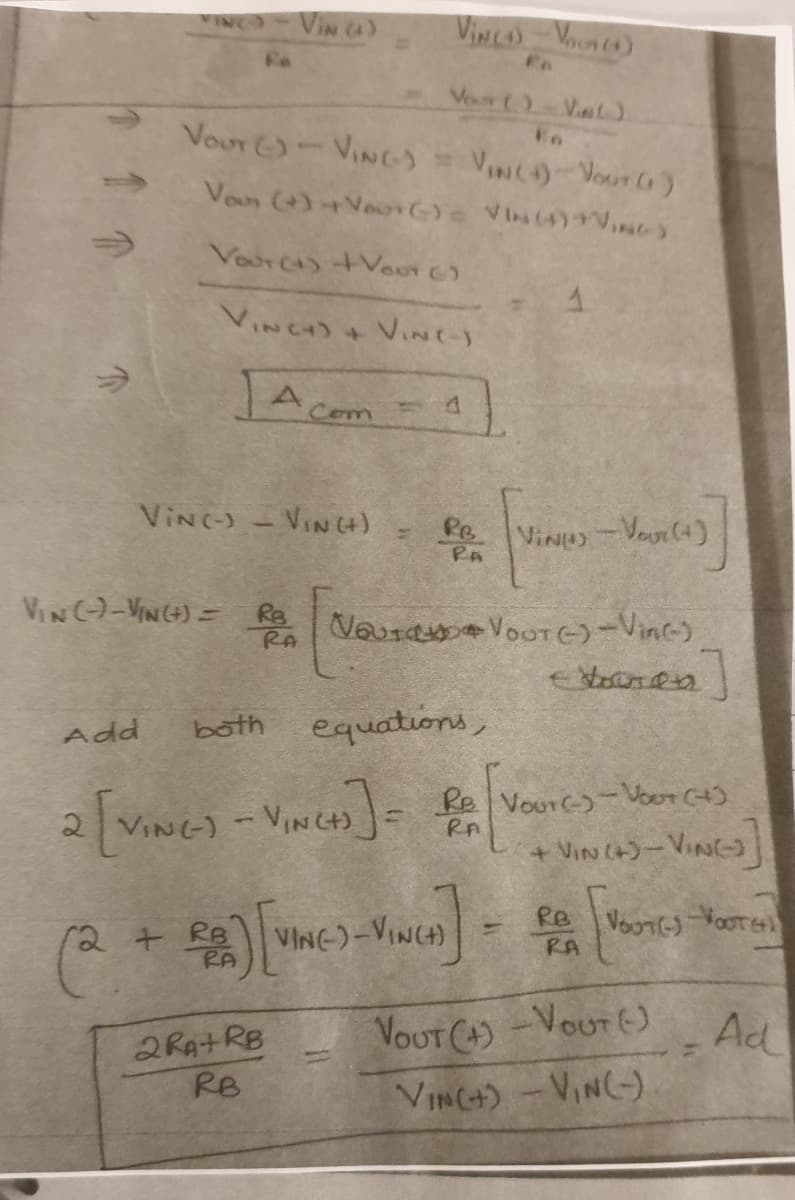 VIN(-) - VIN(+) / RA = VIN(+) - VOUT(+) / RA
= VOUT(-) - VIN(-) / RA
⇒ VOUT(-) - VIN(-) = VIN(+) - VOUT(+)
⇒ VOUT(+) + VOUT(-) = VIN(+) + VIN(-)
⇒ VOUT(+) + VOUT(-) / VIN(+) + VIN(-) = 1
⇒ Acom = 1
VIN(-) - VIN(+) = RB/RA [VIN(+) - VOUT(+)]
VIN(-) - VIN(+) = RB/RA [VOUT(-) - Vin(-)
]
Add both equations,
2[VIN(-) - VIN(+)] = RB/RA [VOUT(-) - VOUT(+)
+ VIN(+) - VIN(-)]
(2 + RB/RA)[VIN(-) - VIN(+)] = RB/RA [VOUT(-) - VOUT(+)]
2RA+RB / RB = VOUT(+) - VOUT(-) / VIN(+) - VIN(-) = Ad